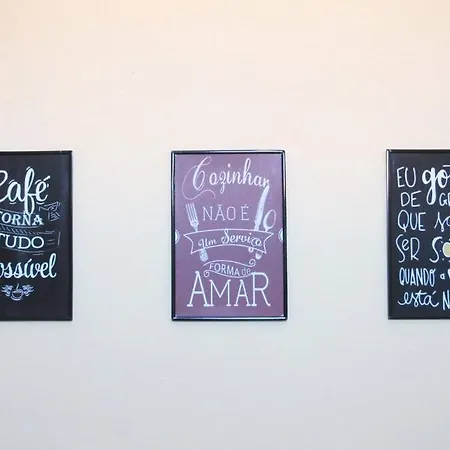 Café
TORNA
TUDO
POSSÍVEL
Cozinhar
NÃO É
Um Serviço
FORMA de
AMAR
EU
DE
QUE
SER
QUANDO a
está